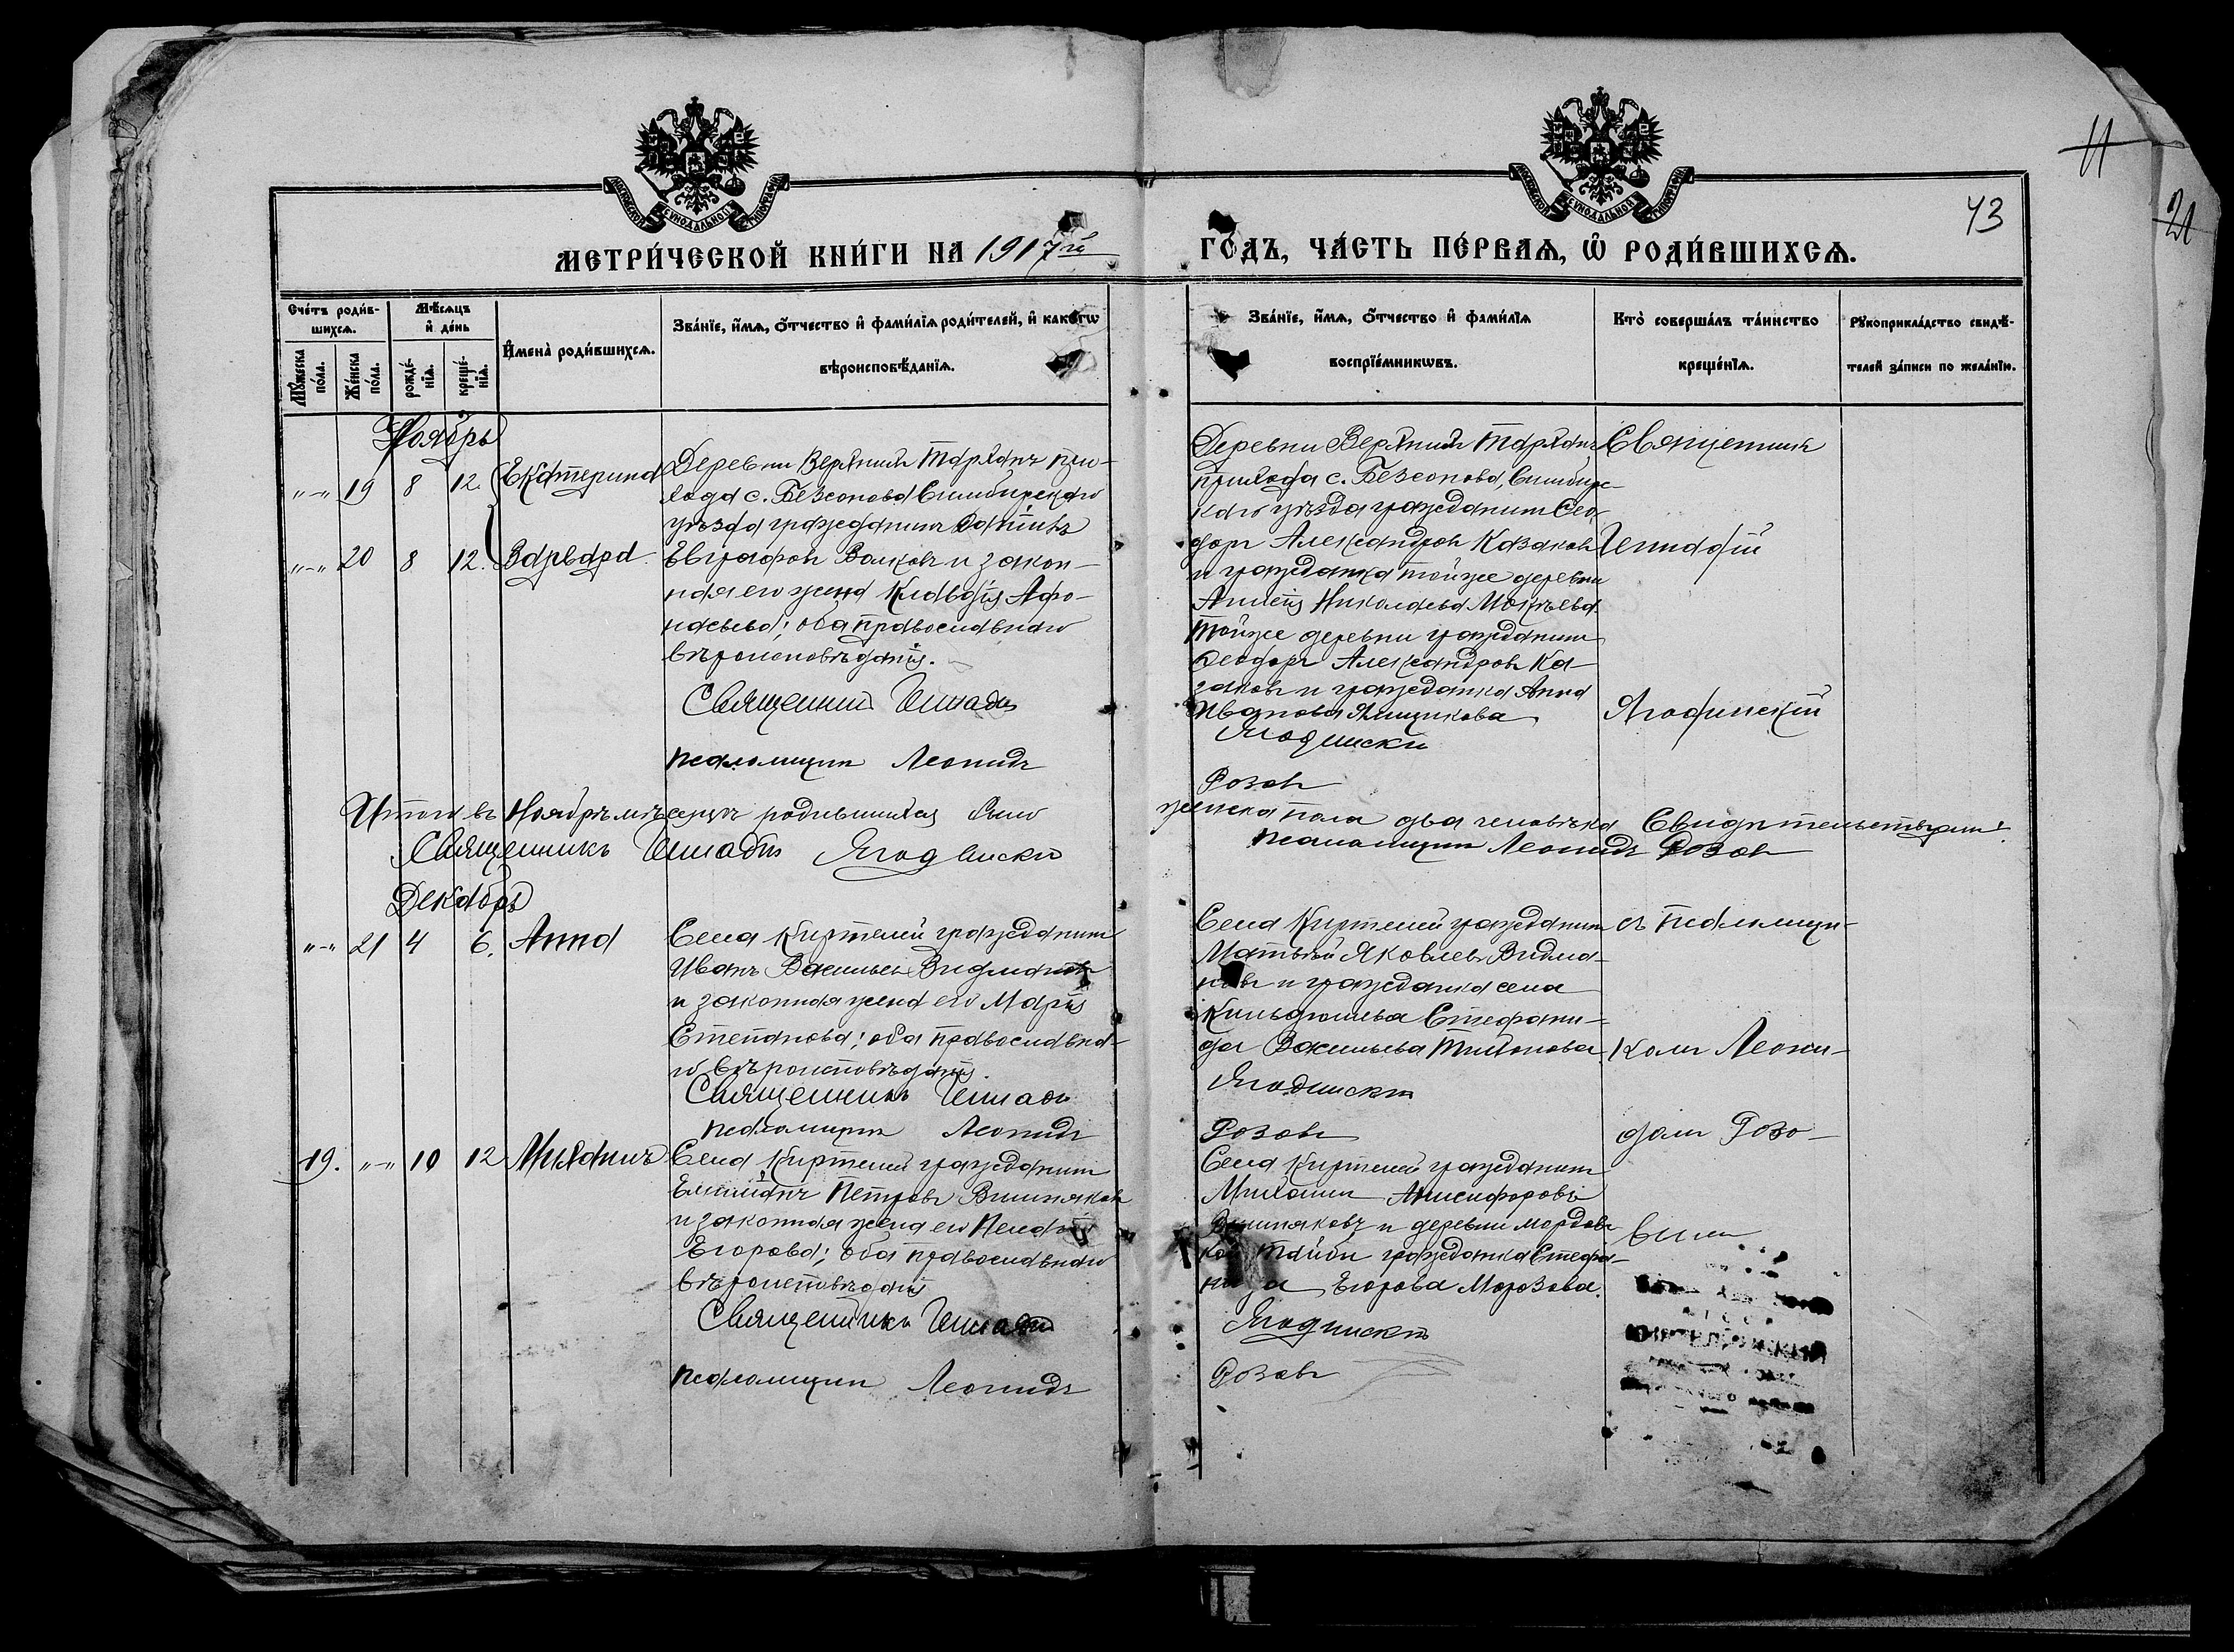 11
21
43
МЕТРИ́ЧЕСКОЙ КНИ́ГИ НА 1917й ГО́ДЪ, ЧА́СТЬ ПЕ́РВАѦ, Ѡ РОДИ́ВШИХСѦ.
Сче́тъ роди́в-
шихсѧ.
Мꙋ́жеска по́ла.
Же́нска по́ла.
Мѣ́сѧцъ
и҆ де́нь
рожде́-
нїѧ.
креще́-
нїѧ.
И҆мена̀ роди́вшихсѧ.
Зва́нїе, и҆́мѧ, ѻ҆́тчество и҆ фами́лїѧ роди́телей, и҆ како́гѡ
вѣроисповѣ́данїѧ.
Зва́нїе, и҆́мѧ, ѻ҆́тчество и҆ фами́лїѧ
воспрїе́мникѡвъ.
Кто̀ соверша́лъ та́инство
креще́нїѧ.
Рꙋкоприкла́дство свидѣ́-
телей за́писи по жела́нїю.
Ноябрь
"-" 19 8 12. Екатерина
"-" 20 8 12. Варвара
Деревни Верхнихъ Тарханъ при-
хода с. Безсонова Симбирскаго
уѣзда гражданинъ
Евграфовъ Волковъ и закон-
ная его жена Клавдія Афо-
насьева; оба православнаго
вѣроисповѣданія.
Священникъ Геннадій
псаломщикъ Леонидъ
Деревни Верхнихъ Тарханъ
прихода с. Безсонова, Симбирс-
каго уѣзда гражданинъ Ѳео-
доръ Александровъ Казаковъ
и гражданка тойже деревни
Николаева
тойже деревни гражданинъ
Ѳеодоръ Александровъ Ка-
заковъ и гражданка Анна
Иванова Ямщикова
Ягодинскій
Розовъ
Священникъ
Геннадій
Ягодинскій
Итого въ Ноябрѣ мѣсяцѣ родившихся было женска пола два человѣка Свидѣтельствуемъ:
Священникъ Геннадій Ягодинскій псаломщикъ Леонидъ Розовъ
Декабрь
"-" 21 4 6. Анна
Села Киртелей гражданинъ
Иванъ Васильевъ Видмановъ
и законная жена его Марія
Степанова; оба православна-
го вѣроисповѣданія.
Священникъ Геннадій
псаломщикъ Леонидъ
Села Киртелей гражданинъ
Матвѣй Яковлевъ Видма-
новъ и гражданка села
Кильдюшева Стефани-
да Васильева Тихонова.
Ягодинскій
Розовъ
съ псаломщи-
комъ Леони-
домъ Розо-
вымъ
19. "-" 10 12 Михаилъ
Села Киртелей гражданинъ
Емиліанъ Петровъ Вишняковъ
и законная жена его
Егорова; оба православнаго
вѣроисповѣданія
Священникъ Геннадій
псаломщикъ Леонидъ
Села Киртелей гражданинъ
Михаилъ Анисифоровъ
Вишняковъ и деревни Мордовс-
кой гражданка Стефа-
нида Егорова Морозова.
Ягодинскій
Розовъ